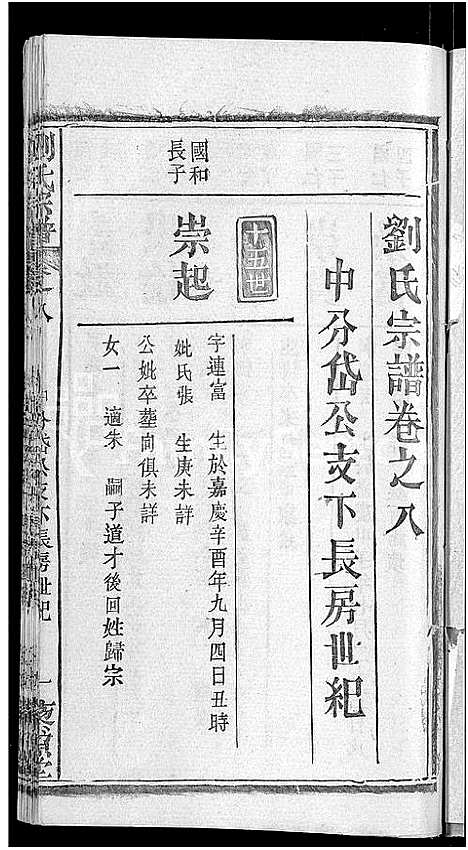 劉氏宗譜卷之八
中分岱公支下長房世紀
十五世
國和
長子
崇起
字連富 生於嘉慶辛酉年九月四日丑時
妣氏張 生庚未詳
公妣卒塟向俱未詳
女一 適朱 嗣子道才後回姓歸宗
劉氏宗譜
卷之八
中分岱公支下長房世紀
一